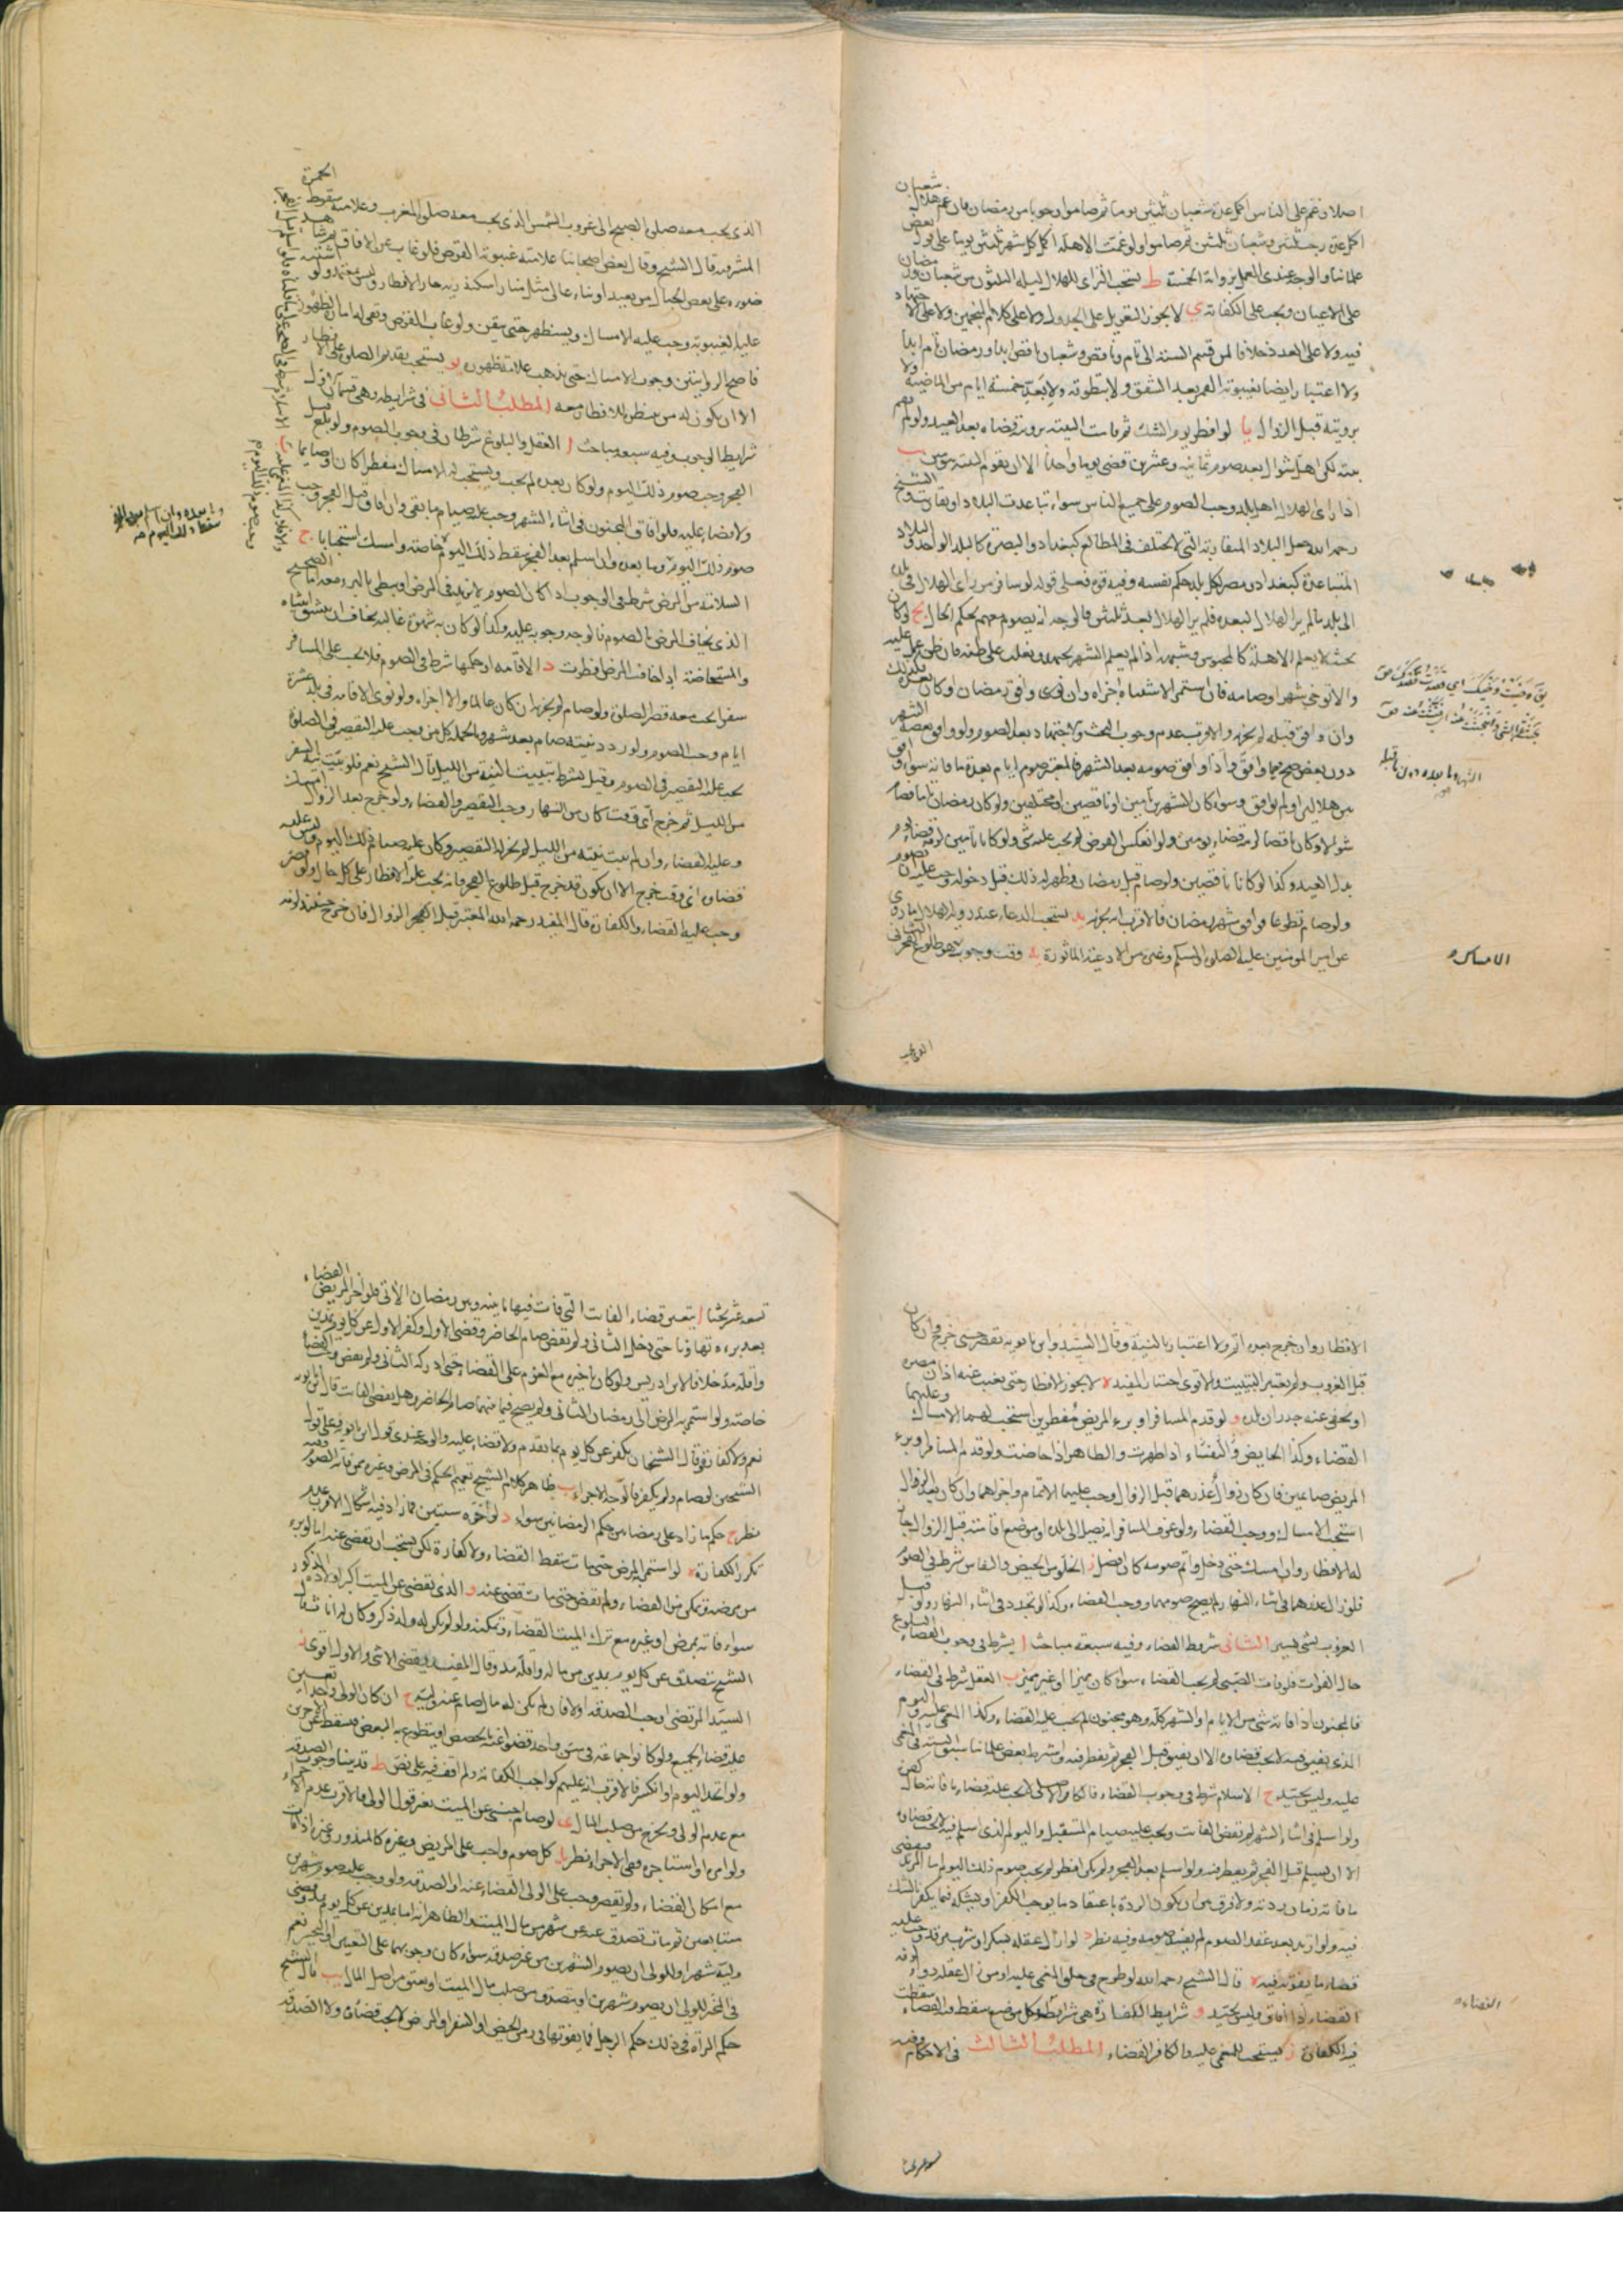 اصلا وغم على الناس اكمل عدة شعبان ثلثين يوما ثم صاموا وجوبا من رمضان فان غم هلال شعبان
اكمل عدة رجب ثلثين وشعبان ثلثين ثم صاموا ولو غمت الاهلة اكمل كل شهر ثلثين يوما على قول بعض
علمائنا والوجه عندى العمل برواية الخمسة ط يستحب الترائى للهلال ليلة الثلثين من شعبان ورمضان
على الاعيان ويجب على الكفاية ى لا يجوز التعويل على الجدول ولا على كلام المنجمين ولا على الاجتهاد
فيه ولا على العدد خلافا لمن قسم السنة الى تام وناقص وشعبان ناقص ابدا ورمضان تام ابدا
ولا اعتبار ايضا بغيبوبة القمر بعد الشفق ولا بتطوقه ولا بعد خمسة ايام من الماضية ولا
برويته قبل الزوال يا لو افطر يوم الشك ثم قامت البينة برويته قضاه بعد العيد ولو لم تقم
بينة لكن اهل شوال بعد صوم ثمانية وعشرين قضى يوما واحدا الا ان تقوم البينة بيومين يب
اذا راى الهلال اهل بلد وجب الصوم على جميع الناس سواء تباعدت البلاد او تقاربت والشيخ
رحمه الله جعل البلاد المتقاربة التى لا تختلف فى المطالع كبغداد والبصرة كالبلد الواحد والبلاد
المتباعدة كبغداد ومصر لكل بلد حكم نفسه وفيه قوة فعلى قوله لو سافر من راى الهلال فى بلده
الى بلد ما لم ير الهلال لبعده فلم ير الهلال بعد ثلثين فالوجه انه يصوم معهم بحكم الحال يج لو كان
بحيث لا يعلم الاهلة كالمحبوس وشبهه اذا لم يعلم الشهر يجتهد ويغلب على ظنه فان ظن عمل عليه
والا توخى شهرا وصامه فان استمر الاشتباه اجزاه وان
وان وافق قبله لم يجزه والاقرب عدم وجوب البحث والاجتهاد بعد الصوم ولو وافق بعضه الشهر
دون بعض صح فيما وافق واذا وافق صومه بعد الشهر فالمعتبر صوم ايام بعدة ما فاته سواء وافق
بين هلالين او لم يوافق وسواء كان الشهرين تامين او ناقصين او مختلفين ولو كان رمضان تاما فصام
شوالا وكان ناقصا لزمه قضاء يومين ولو انعكس الفرض لم يجب عليه شئ ولو كانا تامين لزمه قضاء يوم
بدل العيد وكذا لو كانا ناقصين ولو صام قبل رمضان فظهر له ذلك قبل دخوله وجب عليه ان يصوم
ولو صام تطوعا فوافق شهر رمضان فالاقرب انه يجزيه يد يستحب الدعاء عند روية الهلال بما روى
عن امير المومنين عليه الصلوة والسلم وغيره من الادعية الماثورة يه وقت وجوب هو طلوع الفجر الثانى
الامساك
الشهر وما بعده دون ما قبله
الذى يجب معه صلوة الصبح الى غروب الشمس الذى يجب معه صلوة المغرب وعلامته سقوط الحمرة
المشرقية قال الشيخ وقال بعض اصحابنا علامته غيبوبة القرص فلو غاب عن الافاق ثم شاهد
ضوءه على بعض الجبال من بعيد او بناء عالى مثل منارة اسكندرية جاز الافطار وليس بمعتمد ولو اشتبه
عليه الغيبوبة وجب عليه الامساك ويستظهر حتى يتيقن
فاصح الروايتين وجوب الامساك حتى يذهب يو يستحب تقديم الصلوة على الافطار
الا ان يكون له من ينتظره للافطار معه المطلب الثانى فى شرايطه وهى قسمان الاول
شرايط الوجوب وفيه سبعة مباحث ا العقل والبلوغ شرطان فى وجوب الصوم ولو بلغ قبل
الفجر وجب صوم ذلك اليوم ولو كان بعده لم يجب ويستحب له الامساك مفطرا كان او صايما
ولا قضاء عليه فلو افاق المجنون فى اثناء الشهر وجب عليه صيام ما بقى وان افاق قبل الفجر وجب
صوم ذلك اليوم وما بعده وان اسلم بعد الفجر سقط ذلك اليوم خاصة وامسك استحبابا ج
السلامة من المرض شرط فى الوجوب اذا كان الصوم يزيد فى المرض او يبطى بالبرء معه اما الصحيح
الذى يخاف المرض بالصوم فالوجه وجوبه عليه وكذا لو كان به شهوة غالبة يخاف ان ينشق انثياه
والمستحاضة اذا خافت المرض افطرت د الاقامة او حكمها شرط فى الصوم فلا يجب على المسافر
سفرا يجب معه قصر الصلوة ولو صام لم يجزه ان كان عالما والا اجزاه ولو نوى الاقامة فى بلد عشرة
ايام وجب الصوم ولو ردد نيته صام بعد شهر وبالجملة كل من وجب عليه التقصير فى الصلوة
يجب عليه التقصير فى الصوم وقيل يشترط تبييت النية من الليل قال الشيخ نعم فلو بيت نية السفر
من الليل ثم خرج اى وقت كان من النهار وجب التقصير والقضاء ولو خرج بعد الزوال امسك
وعليه القضاء وان لم يبيت نيته من الليل لم يجز له التقصير وكان عليه صيام ذلك اليوم وليس عليه
قضاؤه اى وقت خرج الا ان يكون قد خرج قبل طلوع الفجر فانه يجب عليه الافطار على كل حال ولو قصر
وجب عليه القضاء والكفارة قال المفيد رحمه الله المعتبر قبل الزوال فان خرج حينئذ لزمه
الافطار وان خرج بعده اتم ولا اعتبار بالنية وقال السيد وابن بابويه يقصر متى خرج وان كان
قبل الغروب ولم يعتبر التبييت والاقوى اختيار المفيد ه لا يجوز الافطار حتى يغيب عنه اذان مصره
او يخفى عنه جدران بلده و لو قدم المسافر او برء المريض مفطرين استحب لهما الامساك وعليهما
القضاء وكذا الحايض والنفساء اذا طهرت والطاهر اذا حاضت ولو قدم المسافر او برء
المريض صائمين فان كان زوال عذرهما قبل الزوال وجب عليهما الاتمام واجزاهما وان كان بعد الزوال
استحب الامساك ووجب القضاء ولو عرف المسافر انه يصل الى بلده او موضع اقامته قبل الزوال جاز
له الافطار وان امسك حتى دخل واتم صومه كان افضل ز الخلو من الحيض والنفاس شرط فى الصوم
فلو زال عذرهما فى اثناء النهار لم يصح صومهما ووجب القضاء وكذا لو تجدد فى اثناء النهار ولو قبل
الغروب بشئ يسير الثانى شروط القضاء وفيه سبعة مباحث ا يشترط فى وجوب القضاء البلوغ
حال الفوات فلو فات الصبى لم يجب القضاء سواء كان مميزا او غير مميز ب العقل شرط فى القضاء
فالمجنون اذا فاته شئ من الايام او الشهر كله وهو مجنون لم يجب عليه القضاء وكذا المغمى عليه واليوم
الذى يفيق فيه لا يجب قضاؤه الا ان يفيق قبل الفجر ثم يفطر فيه وشرط بعض علمائنا سبق النية فى المغمى
عليه وليس بجيد ج الاسلام شرط فى وجوب القضاء فالكافر الاصلى لا يجب عليه قضاء ما فاته حال كفره
ولو اسلم فى اثناء الشهر لم يقض الفائت ويجب عليه صيام المستقبل واليوم الذى اسلم فيه لا يجب قضاؤه
الا ان يسلم قبل الفجر ثم يفطر فيه ولو اسلم بعد الفجر ولم يكن افطر لم يجب صوم ذلك اليوم اما المرتد فيقضى
ما فاته زمان ردته ولا فرق بين ان يكون الردة باعتقاد ما يوجب الكفر او بشكه فيما يكفر بالشك
فيه ولو ارتد بعد عقد الصوم لم يفسد صومه وفيه نظر د لو زال عقله بسكر او شرب مرقد وجب عليه
قضاء ما يفوته فيه ه قال الشيخ رحمه الله لو طرح فى حلق المغمى عليه او من زال عقله دواء لزمه
القضاء اذا افاق وليس بجيد و شرايط الكفارة هى شرايط كل موضع سقط فيه القضاء سقطت
فيه الكفارة ز يستحب للمغمى عليه والكافر القضاء المطلب الثالث فى الاحكام وفيه
القضاء
تسعة عشر بحثا ا يتعين قضاء الفائت التى فات فيها ما بينه وبين رمضان الآتى فلو اخر المريض القضاء
بعد برءه تهاونا حتى دخل الثانى ولم يقض صام الحاضر وقضى الاول وكفر الاول عن كل يوم بمدين
واقله مد خلافا لابن ادريس ولو كان تاخيره مع العزم على القضاء حتى ادركه الثانى ولم يقض وجب القضاء
خاصة ولو استمر به المرض الى رمضان الثانى ولم يصح فيما بينهما صام الحاضر وهل يقضى الفائت قال ابن بابويه
نعم ولا كفارة وقال الشيخان يكفر عن كل يوم بما تقدم ولا قضاء عليه والوجه عندى قول ابن بابويه فعلى قول
الشيخين لو صام ولم يكفر فالوجه الاجزاء ب ظاهر كلام الشيخ تعميم الحكم فى المرض وغيره ممن فاته الصوم وفيه
نظر ج حكم ما زاد على رمضانين حكم الرمضانين سواء د لو اخره سنتين فما زاد ففيه اشكال الاقرب عدم
تكرر الكفارة ه لو استمر به المرض حتى مات سقط القضاء ولا كفارة لكن يستحب ان يقضى عنه اما لو برء
من مرضه وتمكن من القضاء ولم يقض حتى مات قضى عنه و الذى يقضى عن الميت اكبر اولاده الذكور
سواء فاته بمرض او غيره مع ترك الميت القضاء وتمكنه ولو لم يكن له ولد ذكر وكان له اناث قال
الشيخ يتصدق عن كل يوم بمدين من ماله واقله مد وقال المفيد يقضى الانثى والاول اقوى ز
السيد المرتضى اوجب الصدقة اولا فان لم يكن له مال صام عنه وليه ح ان كان الولى واحدا تعين
عليه قضاء الجميع ولو كانوا جماعة فى سن واحد قضوا عنه بالحصص او يتطوع به البعض فيسقط عن الآخرين
ولو اتحد اليوم او انكسر فالاقرب انه عليهم كواجب الكفاية ولم اقف فيه على نص ط قد بينا وجوب الصدقة
مع عدم الولى ويخرج من صلب المال ى لو صام اجنبى عن الميت بغير قول الولى فالاقرب عدم الاجزاء
ولو امره او استاجره ففى الاجزاء نظر يا كل صوم واجب على المريض وغيره كالمنذور وغيره اذا فات
مع امكان القضاء ولم يقضه وجب على الولى القضاء عنه او الصدقة ولو وجب عليه صوم شهرين
متتابعين ثم مات تصدق عنه عن شهر من مال الميت والظاهر انه اما بمدين عن كل يوم او مد وقضى
وليه شهرا وللولى ان يصوم الشهرين من غير صدقة سواء كان وجوبهما على التعيين او التخيير نعم
فى التخيير للولى ان يصوم شهرين او يتصدق من صلب مال الميت او يعتق من اصل المال يب قال الشيخ
حكم المراة فى ذلك حكم الرجل فما يفوتها فى زمن الحيض او السفر او المرض لا يجب قضاؤه ولا الصدقة